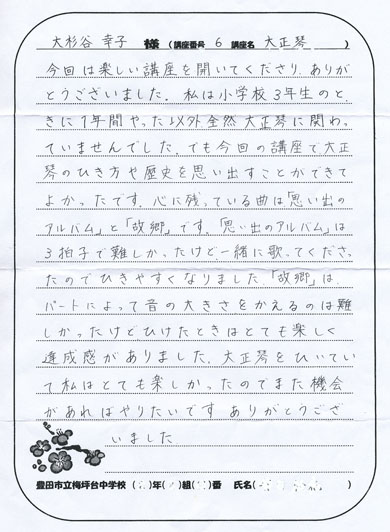 大杉谷 幸子 様 (講座番号 6 講座名 大正琴 )
今回は楽しい講座を開いてくださり、ありが
とうございました。私は小学校3年生のと
きに1年間やった以外全然大正琴に関わっ
ていませんでした。でも今回の講座で大正
琴のひき方や歴史を思い出すことができて
よかったです。心に残っている曲は「思い出の
アルバム」と「故郷」です。「思い出のアルバム」は
3拍子で難しかったけど一緒に歌ってくださっ
たのでひきやすくなりました「故郷」は
パートによって音の大きさをかえるのは難
しかったけどひけたときはとても楽しく
達成感がありました。大正琴をひいてい
て私はとても楽しかったのでまた機会
があればやりたいです ありがとうござ
いました
豊田市立梅坪台中学校 ( )年( )組( )番 氏名( )